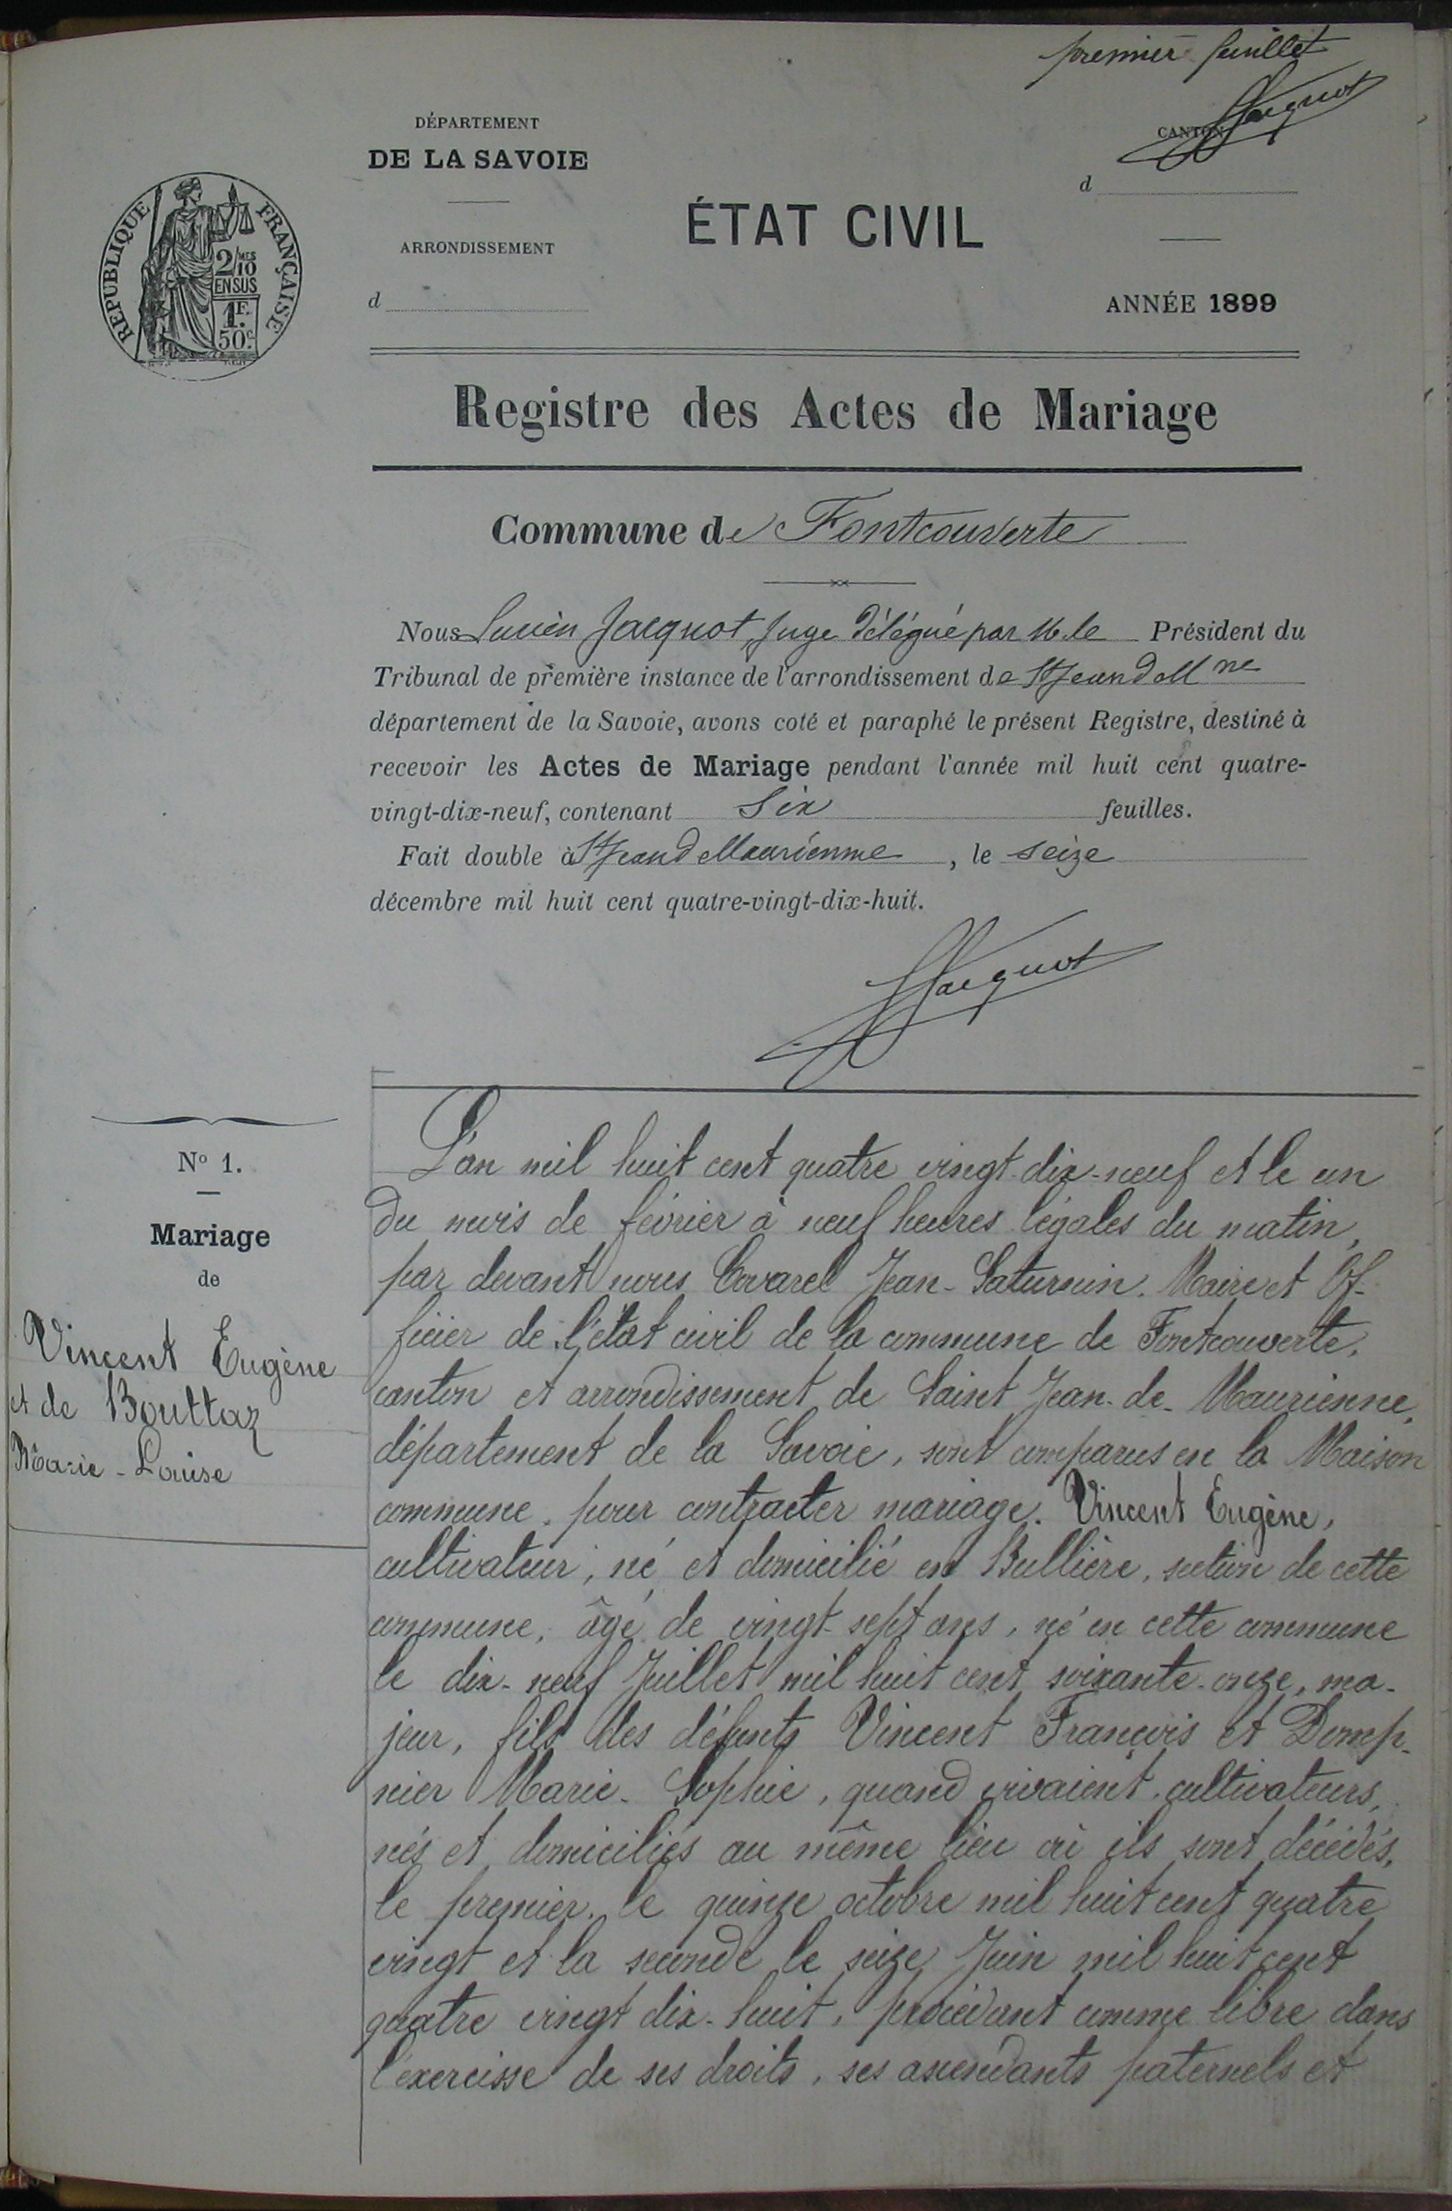 premier feuillet
Jacquot
DÉPARTEMENT
DE LA SAVOIE
ARRONDISSEMENT
d
REPUBLIQUE FRANÇAISE
2/10 MES
EN SUS
1F.
50c.
ÉTAT CIVIL
CANTON
d
ANNÉE 1899
Registre des Actes de Mariage
Commune de Fontcouverte
Nous Lucien Jacquot, Juge délégué par M. le Président du
Tribunal de première instance de l'arrondissement de St Jean de Mne
département de la Savoie, avons coté et paraphé le présent Registre, destiné à
recevoir les Actes de Mariage pendant l'année mil huit cent quatre-
vingt-dix-neuf, contenant Six feuilles.
Fait double à St Jean de Maurienne, le seize
décembre mil huit cent quatre-vingt-dix-huit.
Jacquot
No 1.
Mariage
de
Vincent Eugène
et de Bouttaz
Marie-Louise
L'an mil huit cent quatre vingt-dix-neuf et le un
du mois de février à neuf heures légales du matin,
par devant nous Covarel Jean-Saturnin. Maire et Of-
ficier de l'état civil de la commune de Fontcouverte,
canton et arrondissement de Saint Jean-de-Maurienne,
département de la Savoie, sont comparus en la Maison
commune, pour contracter mariage. Vincent Eugène,
cultivateur, né et domicilié en Bullière, section de cette
commune, âgé de vingt-sept ans, né en cette commune
le dix-neuf Juillet mil huit cent soixante-onze, ma-
jeur, fils des défunts Vincent François et Domp-
nier Marie-Sophie, quand vivaient cultivateurs,
nés et domiciliés au même lieu où ils sont décédés,
le premier, le quinze octobre mil huit cent quatre
vingt et la seconde le seize Juin mil huit cent
quatre vingt dix-huit, procédant comme libre dans
l'exercisse de ses droits, ses ascendants paternels et